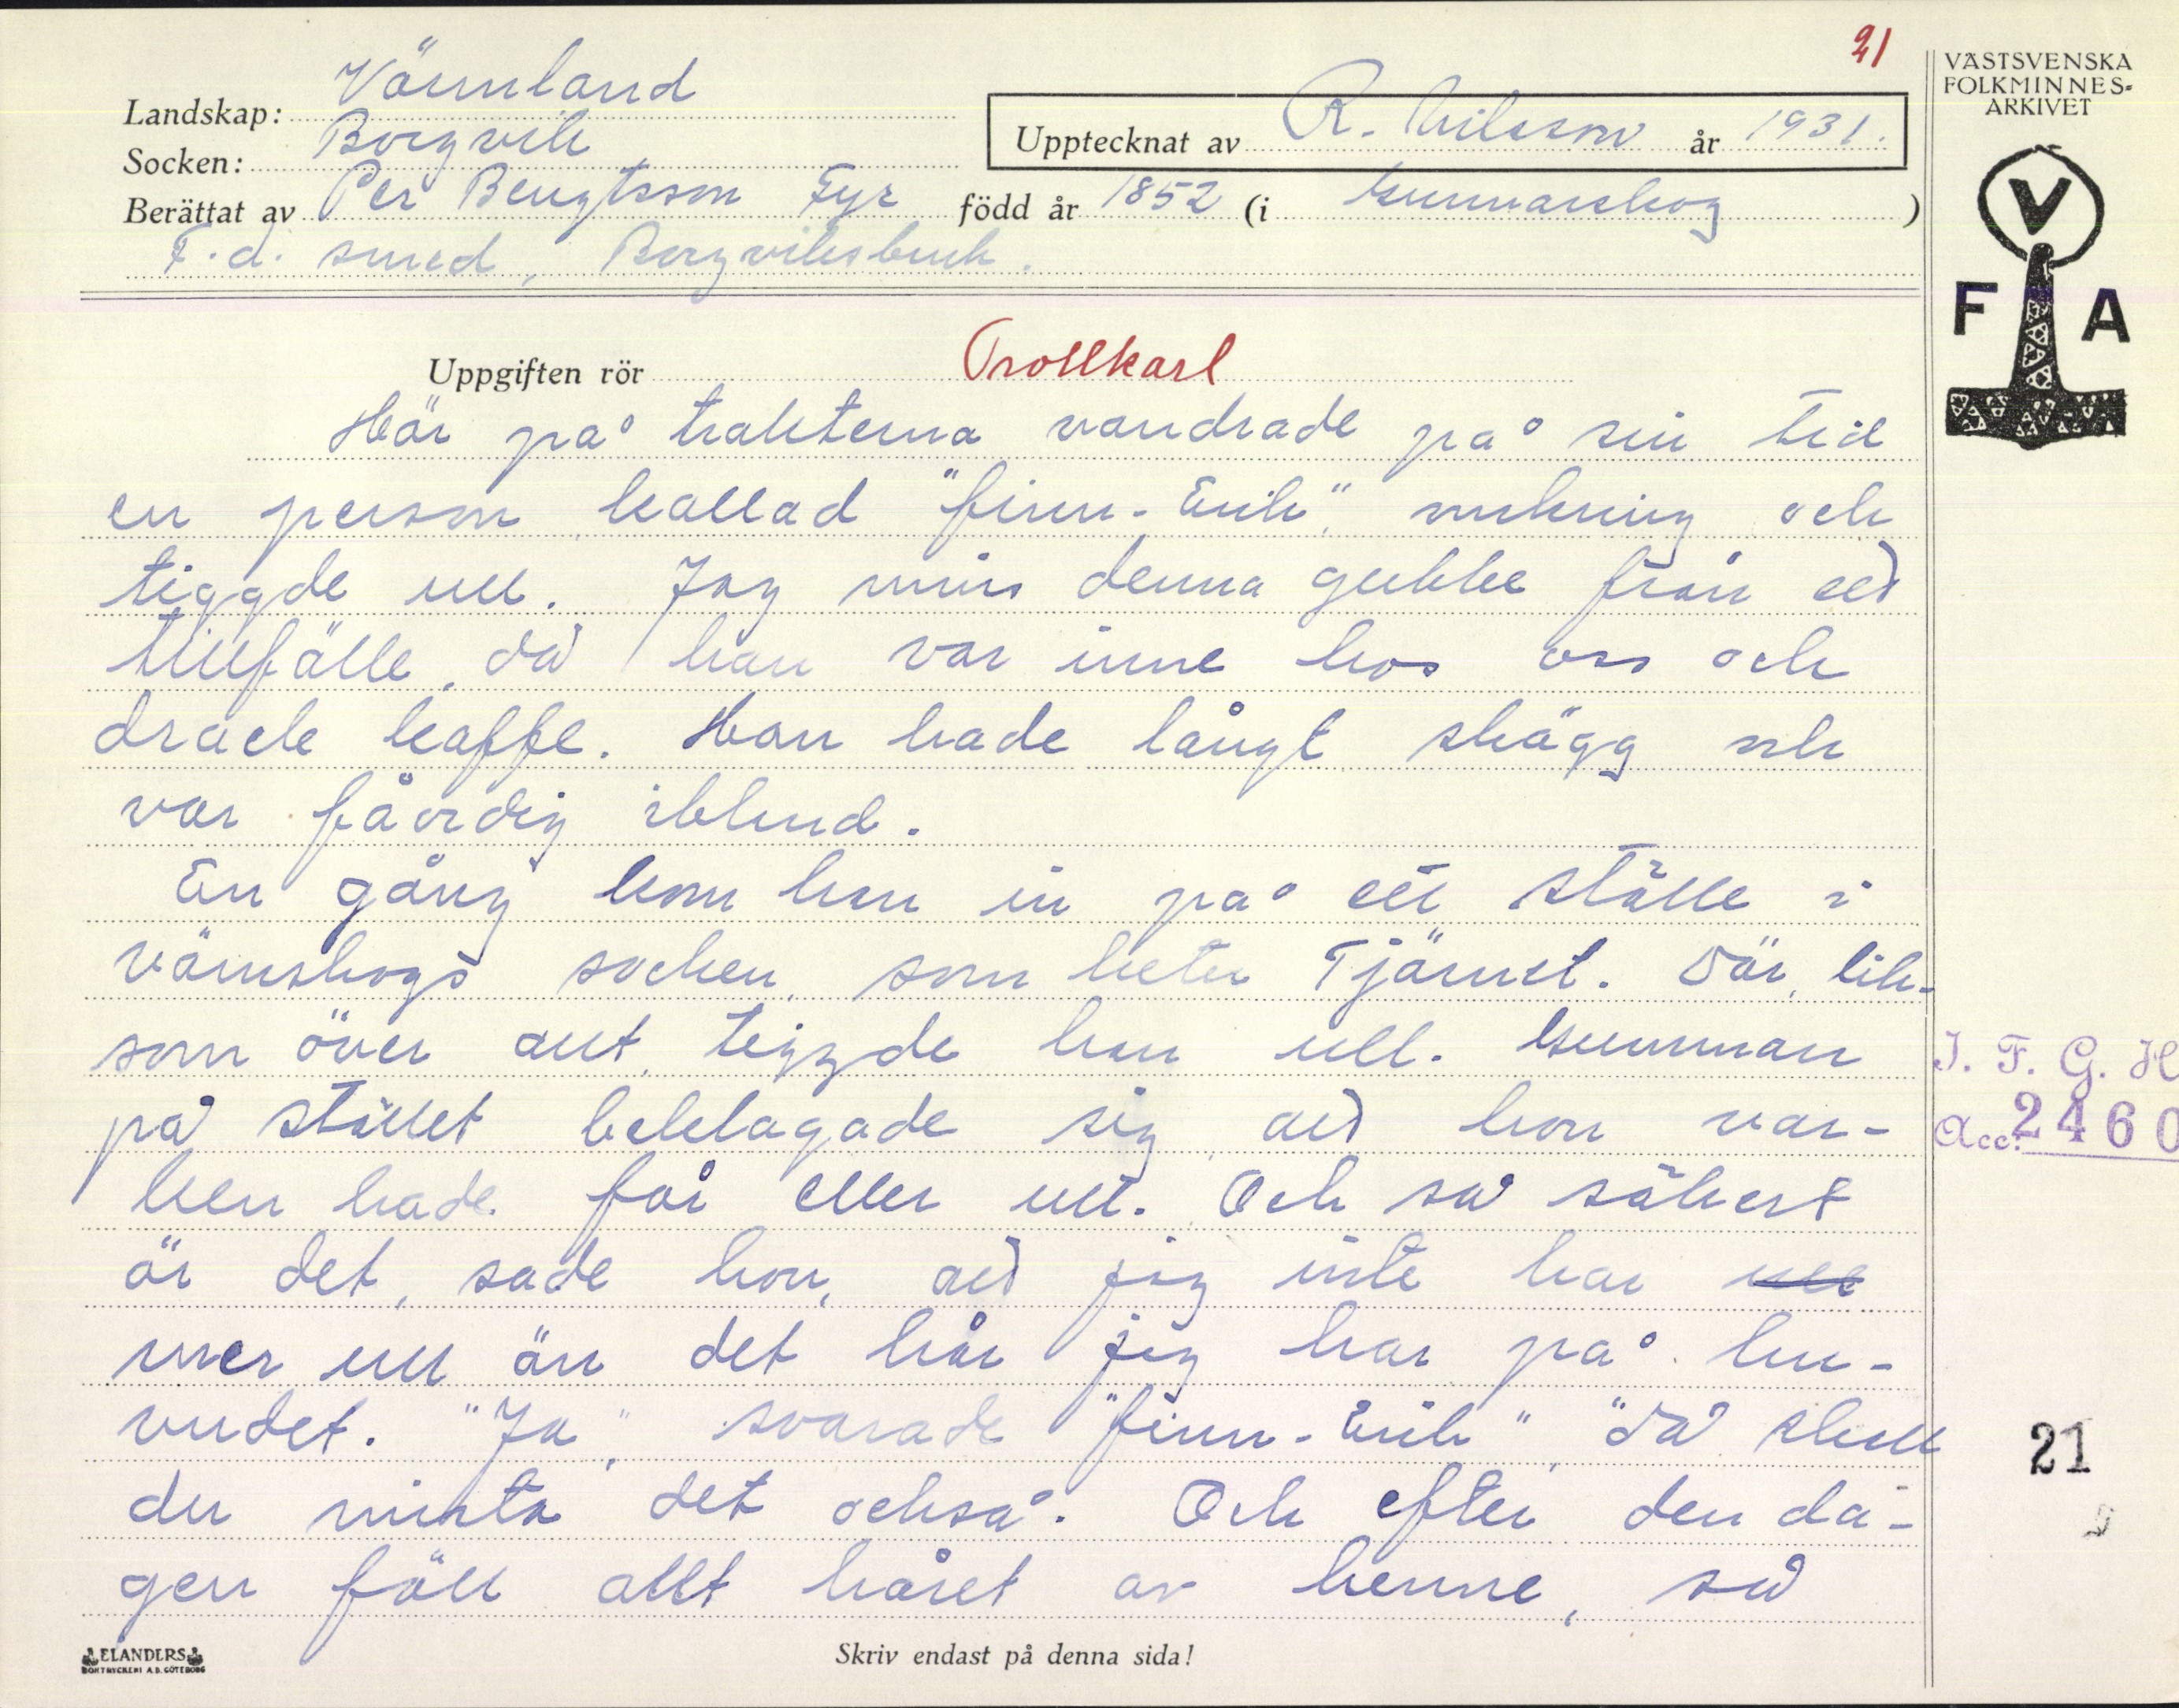 21
VÄSTSVENSKA
FOLKMINNES-
ARKIVET
Landskap: Värmland
Socken: Borgvik
Upptecknat av R. Nilsson år 1931.
Berättat av Per Bengtsson Fyr född år 1852 (i Gunnarskog )
F.d. smed, Borgviksbruk.
V
F A
Uppgiften rör Trollkarl
Här på trakterna vandrade på sin tid
en person, kallad "finn-Erik", omkring och
tiggde ull. Jag mins denna gubbe från ett
tillfälle, då han var inne hos oss och
drack kaffe. Han hade långt skägg och
var fåordig ibland.
En gång kom han in på ett ställe i
värmskogs socken, som heter Tjärnet. Där, lik-
som över allt, tiggde han ull. Gumman
på stället beklagade sig, att hon var-
ken hade får eller ull. Och så säkert
är det, sade hon, att jag inte har ull
mer ull än det hår jag har på hu-
vudet. "Ja", svarade "finn-Erik", "då skall
du mista det också". Och efter den da-
gen föll allt håret av henne, så
I. F. G. H
Acc: 2460
21
ELANDERS
BOKTRYCKERI A.B. GÖTEBORG
Skriv endast på denna sida!